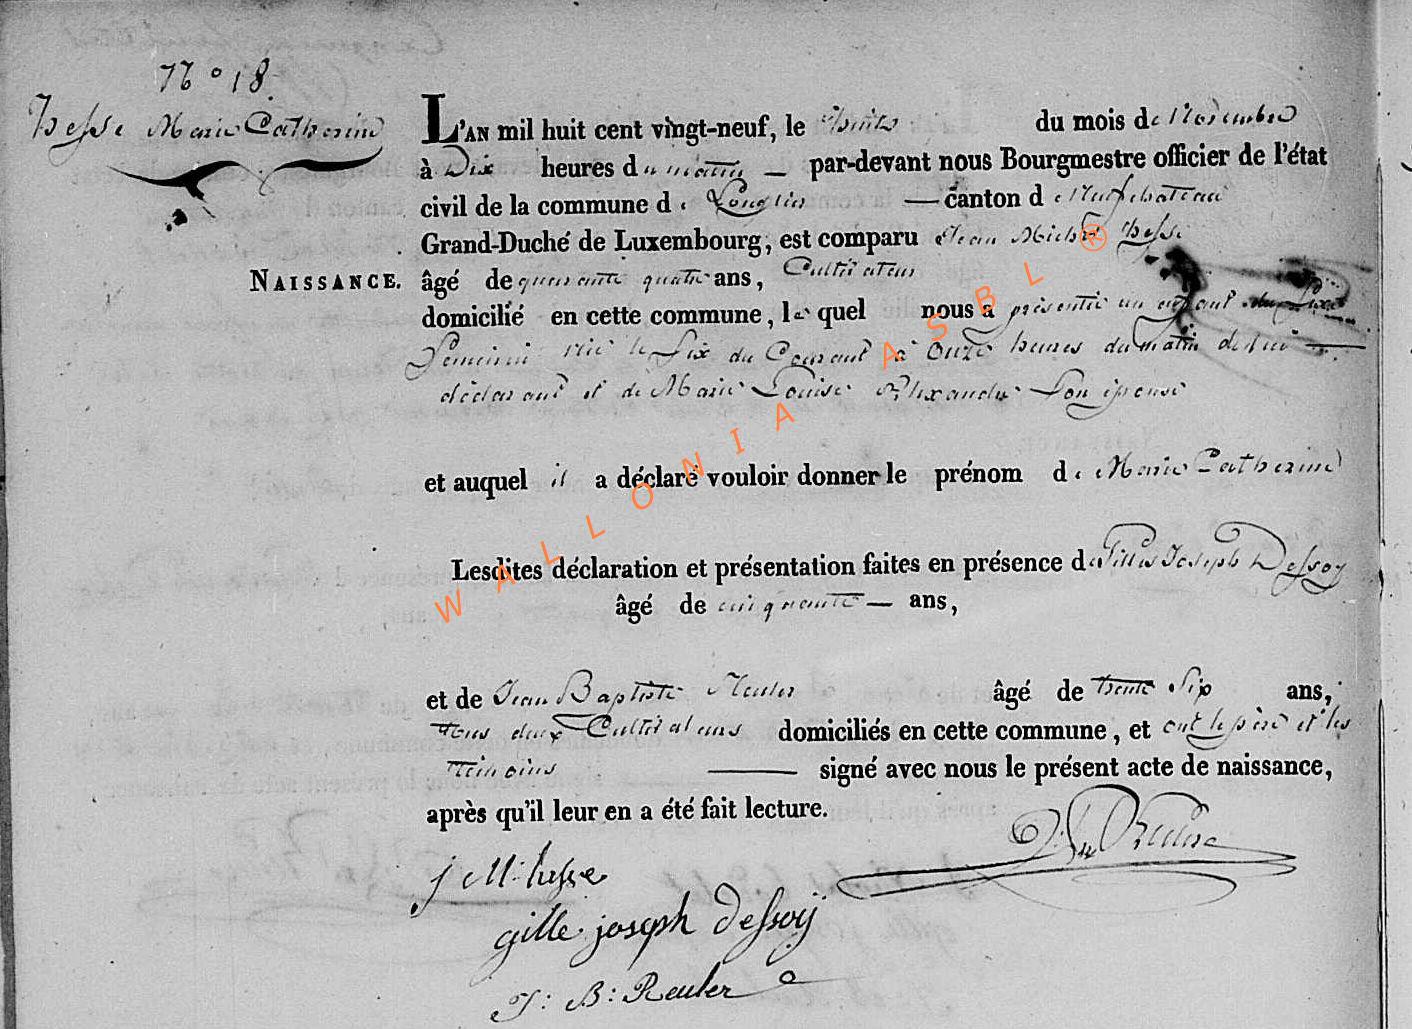 N° 18.
Hesse Marie Catherine
L'AN mil huit cent vingt-neuf, le du mois de Novembre
à Dix heures du matin — par-devant nous Bourgmestre officier de l'état
civil de la commune de Longlier — canton de Neufchateau
Grand-Duché de Luxembourg, est comparu Jean Michel hesse
NAISSANCE. âgé de quarante quatre ans, Cultivateur
domicilié en cette commune, le quel nous a présenté un enfant du Sexe
Feminin né le Six du Courant à Onze heures du matin de lui —
déclarant et de Marie Louise Alexandre Son épouse
et auquel il a déclaré vouloir donner le prénom de Marie Catherine
Lesdites déclaration et présentation faites en présence de Gilles Joseph Dessoy
âgé de cinquante — ans,
et de Jean Baptiste Reuler âgé de trente Six ans,
tous deux Cultivateurs domiciliés en cette commune, et ont le père et les
témoins — signé avec nous le présent acte de naissance,
après qu'il leur en a été fait lecture.
j M: hesse
gille joseph dessoÿ
J: B: Reuler
WALLONIA ASBL ®